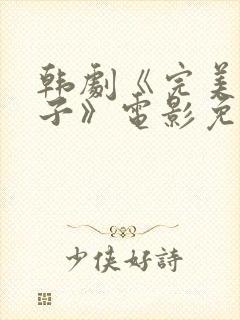 韩劇《完美
子》電影免
少侠好詩